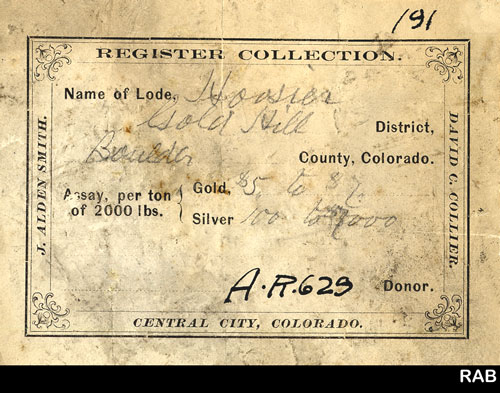 191
REGISTER COLLECTION.
Name of Lode, Hoosier
Gold Hill District,
Boulder County, Colorado.
Assay, per ton of 2000 lbs. { Gold $5 to $
Silver 100 to
A.R.629 Donor.
CENTRAL CITY, COLORADO.
J. ALDEN SMITH.
DAVID C. COLLIER.
RAB